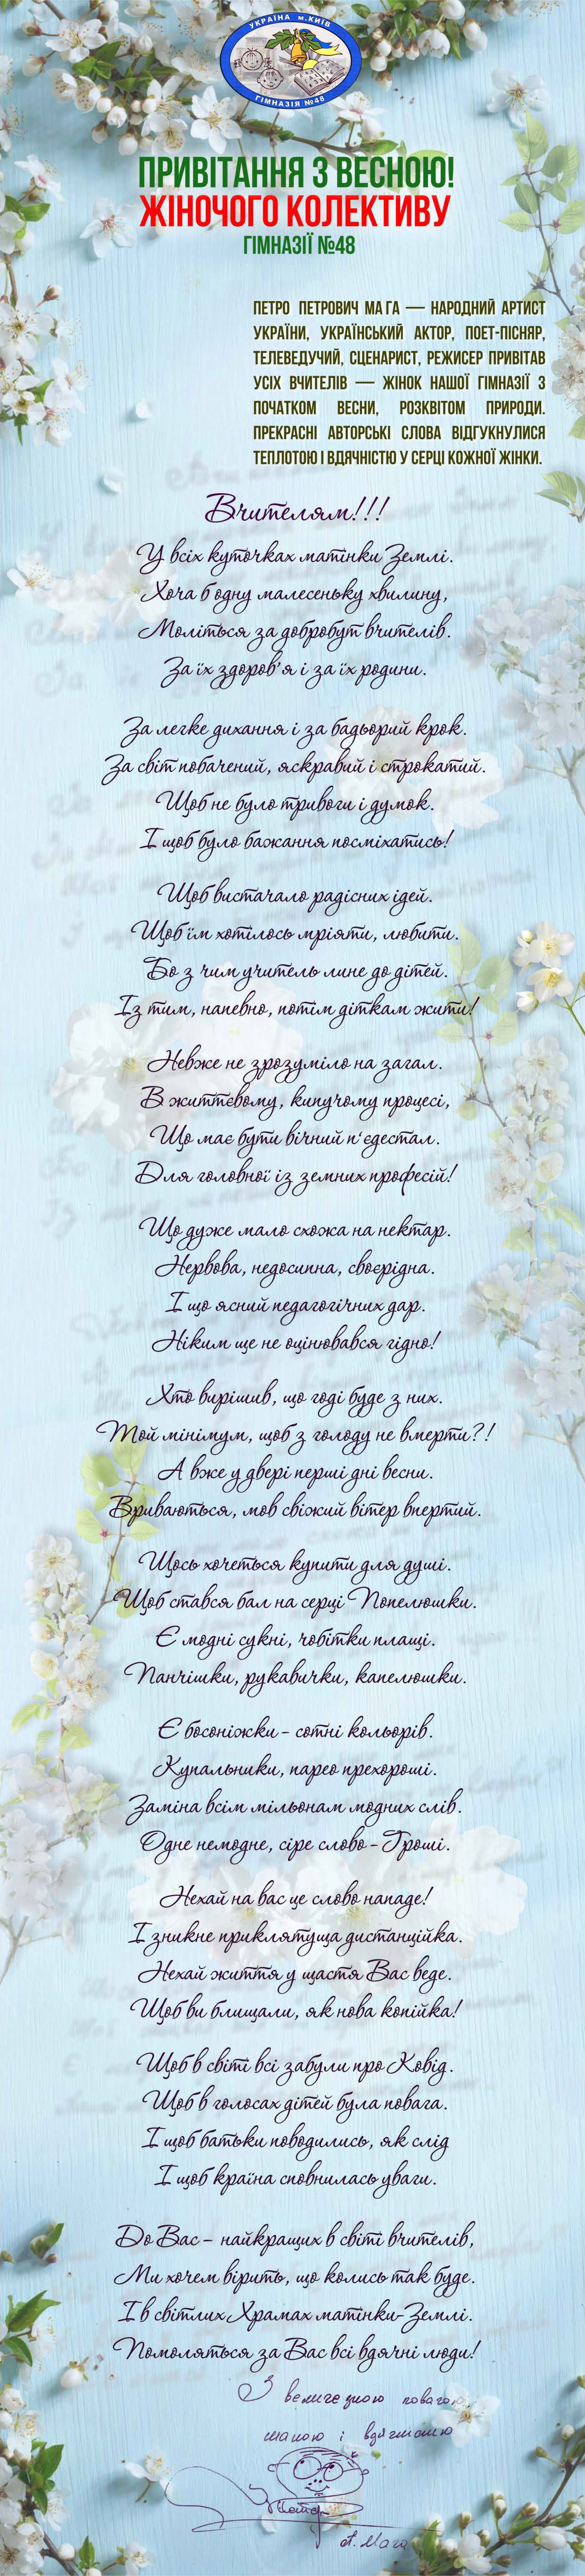 УКРАЇНА м.КИЇВ
ГІМНАЗІЯ №48
ПРИВІТАННЯ З ВЕСНОЮ!
ЖІНОЧОГО КОЛЕКТИВУ
ГІМНАЗІЇ №48
ПЕТРО ПЕТРОВИЧ МАГА — НАРОДНИЙ АРТИСТ
УКРАЇНИ, УКРАЇНСЬКИЙ АКТОР, ПОЕТ-ПІСНЯР,
ТЕЛЕВЕДУЧИЙ, СЦЕНАРИСТ, РЕЖИСЕР ПРИВІТАВ
УСІХ ВЧИТЕЛІВ — ЖІНОК НАШОЇ ГІМНАЗІЇ З
ПОЧАТКОМ ВЕСНИ, РОЗКВІТОМ ПРИРОДИ.
ПРЕКРАСНІ АВТОРСЬКІ СЛОВА ВІДГУКНУЛИСЯ
ТЕПЛОТОЮ І ВДЯЧНІСТЮ У СЕРЦІ КОЖНОЇ ЖІНКИ.
Вчителям!!!
У всіх куточках матінки Землі.
Хоча б одну малесеньку хвилину,
Моліться за добробут вчителів.
За їх здоров'я і за їх родини.
За легке дихання і за бадьорий крок.
За світ побачений, яскравий і строкатий.
Щоб не було тривоги і думок.
І щоб було бажання посміхатись!
Щоб вистачало радісних ідей.
Щоб їм хотілось мріяти, любити.
Бо з чим учитель лине до дітей.
Із тим, напевно, потім діткам жити!
Невже не зрозуміло на загал.
В життєвому, кипучому процесі,
Що має бути вічний п'єдестал.
Для головної із земних професій!
Що дуже мало схожа на нектар.
Нервова, недоспипна, своєрідна.
І що ясний педагогічних дар.
Ніким ще не оцінювався гідно!
Хто вирішив, що годі буде з них.
Той мінімум, щоб з голоду не вмерти?!
А вже у двері перші дні весни.
Вриваються, мов свіжий вітер впертий.
Щось хочеться купити для душі.
Щоб стався бал на серці Попелюшки.
Є модні сукні, чобітки плащі.
Панчішки, рукавички, капелюшки.
Є босоніжки - сотні кольорів.
Купальники, парео прехороші.
Заміна всім мільонам модних слів.
Одне немодне, сіре слово - Гроші.
Нехай на вас це слово нападе!
І зникне приклятуща дистанційка.
Нехай життя у щастя Вас веде.
Щоб ви блищали, як нова копійка!
Щоб в світі всі забули про Ковід.
Щоб в голосах дітей була повага.
І щоб батьки поводились, як слід
І щоб країна сповнилась уваги.
До Вас – найкращих в світі вчителів,
Ми хочем вірить, що колись так буде.
І в світлих Храмах матінки-Землі.
Помоляться за Вас всі вдячні люди!
З величезною повагою,
шаною і вдячністю
Петро
П. Мага